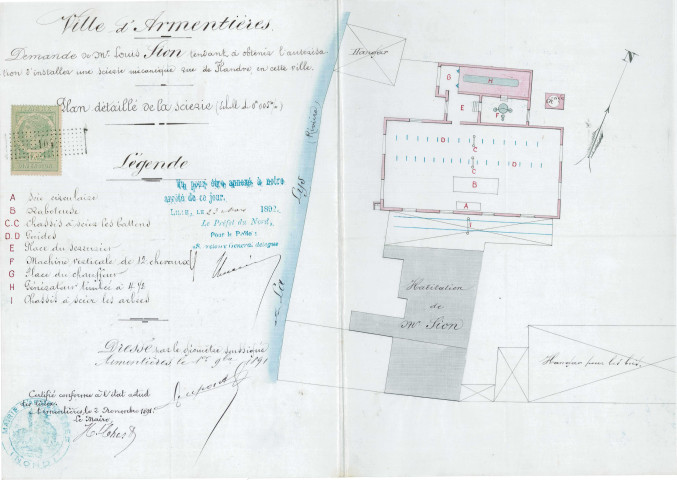 Ville d'Armentières.
Demande de Mr Louis Sion tendant à obtenir l'autorisa-
tion d'installer une scierie mécanique rue de Flandre en cette ville.
Plan détaillé de la scierie
Légende
A Scie circulaire
B Raboteuse
C.C Chassis à scier les battens
D.D
E Place du
F Machine verticale de 12 chevaux
G Place du chauffeur
H Générateur timbré à 4 1/2
I Chassis à scier les arbres
Vu pour être annexé à notre
arrêté de ce jour.
LILLE, LE
Le Préfet du Nord,
Pour le Préfet :
Général délégué
Dressé par le géomètre soussigné
Armentières le 1er 9bre 1891
Certifié conforme à l'état actuel
des lieux.
Armentières le 2 Novembre 1891.
Le Maire,
Hangar
G
H
E
F
C
D
D
C
B
A
I
(Rivière)
Lys
La
Habitation
de
Mr Sion
Hangar pour les bois
N